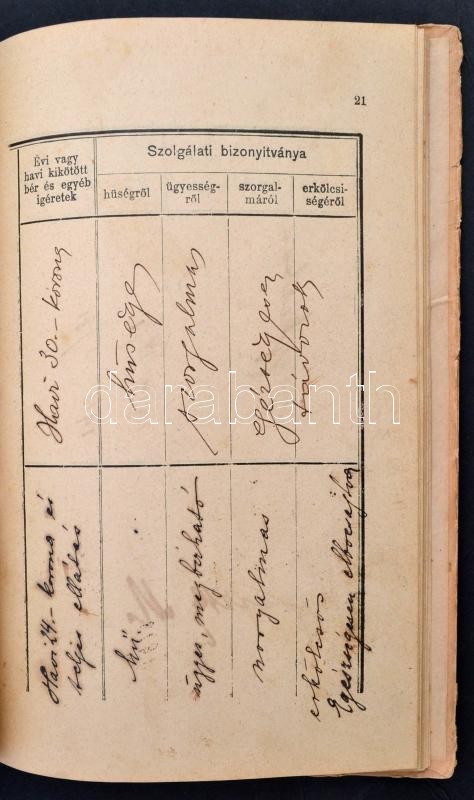 21
Évi vagy
havi kikötött
bér és egyéb
igéretek
Szolgálati bizonyitványa
hüségről
ügyesség-
ről
szorgal-
máról
erkölcsi-
ségéről
Havi 30.- korona
hűséges
szorgalmas
Egészségesen
távozott
Havi 24.- korona és
teljes ellátás
hű.
ügyes, megbízható
szorgalmas
erkölcsös
Egészségesen elbocsájtva
darabanth